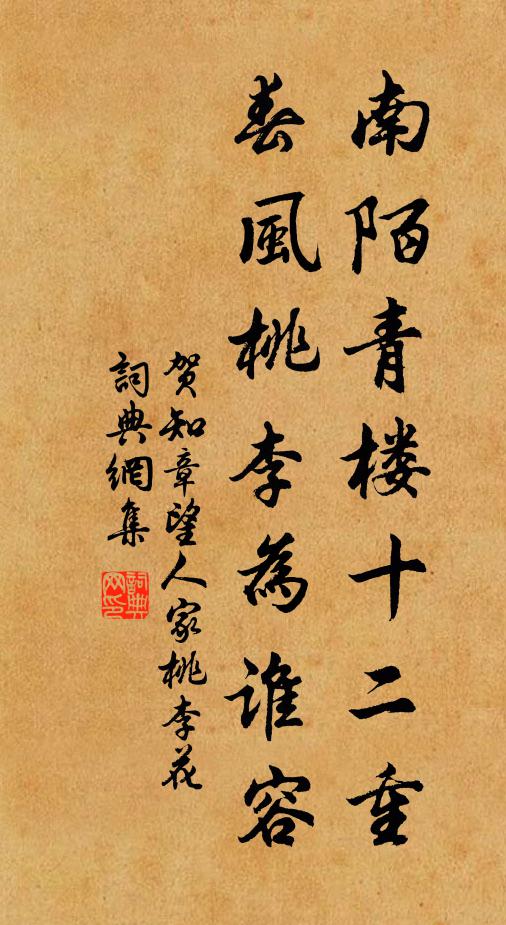 南陌青楼十二重
春風桃李為誰容
贺知章望人家桃李花
詞典網集
詞典网印